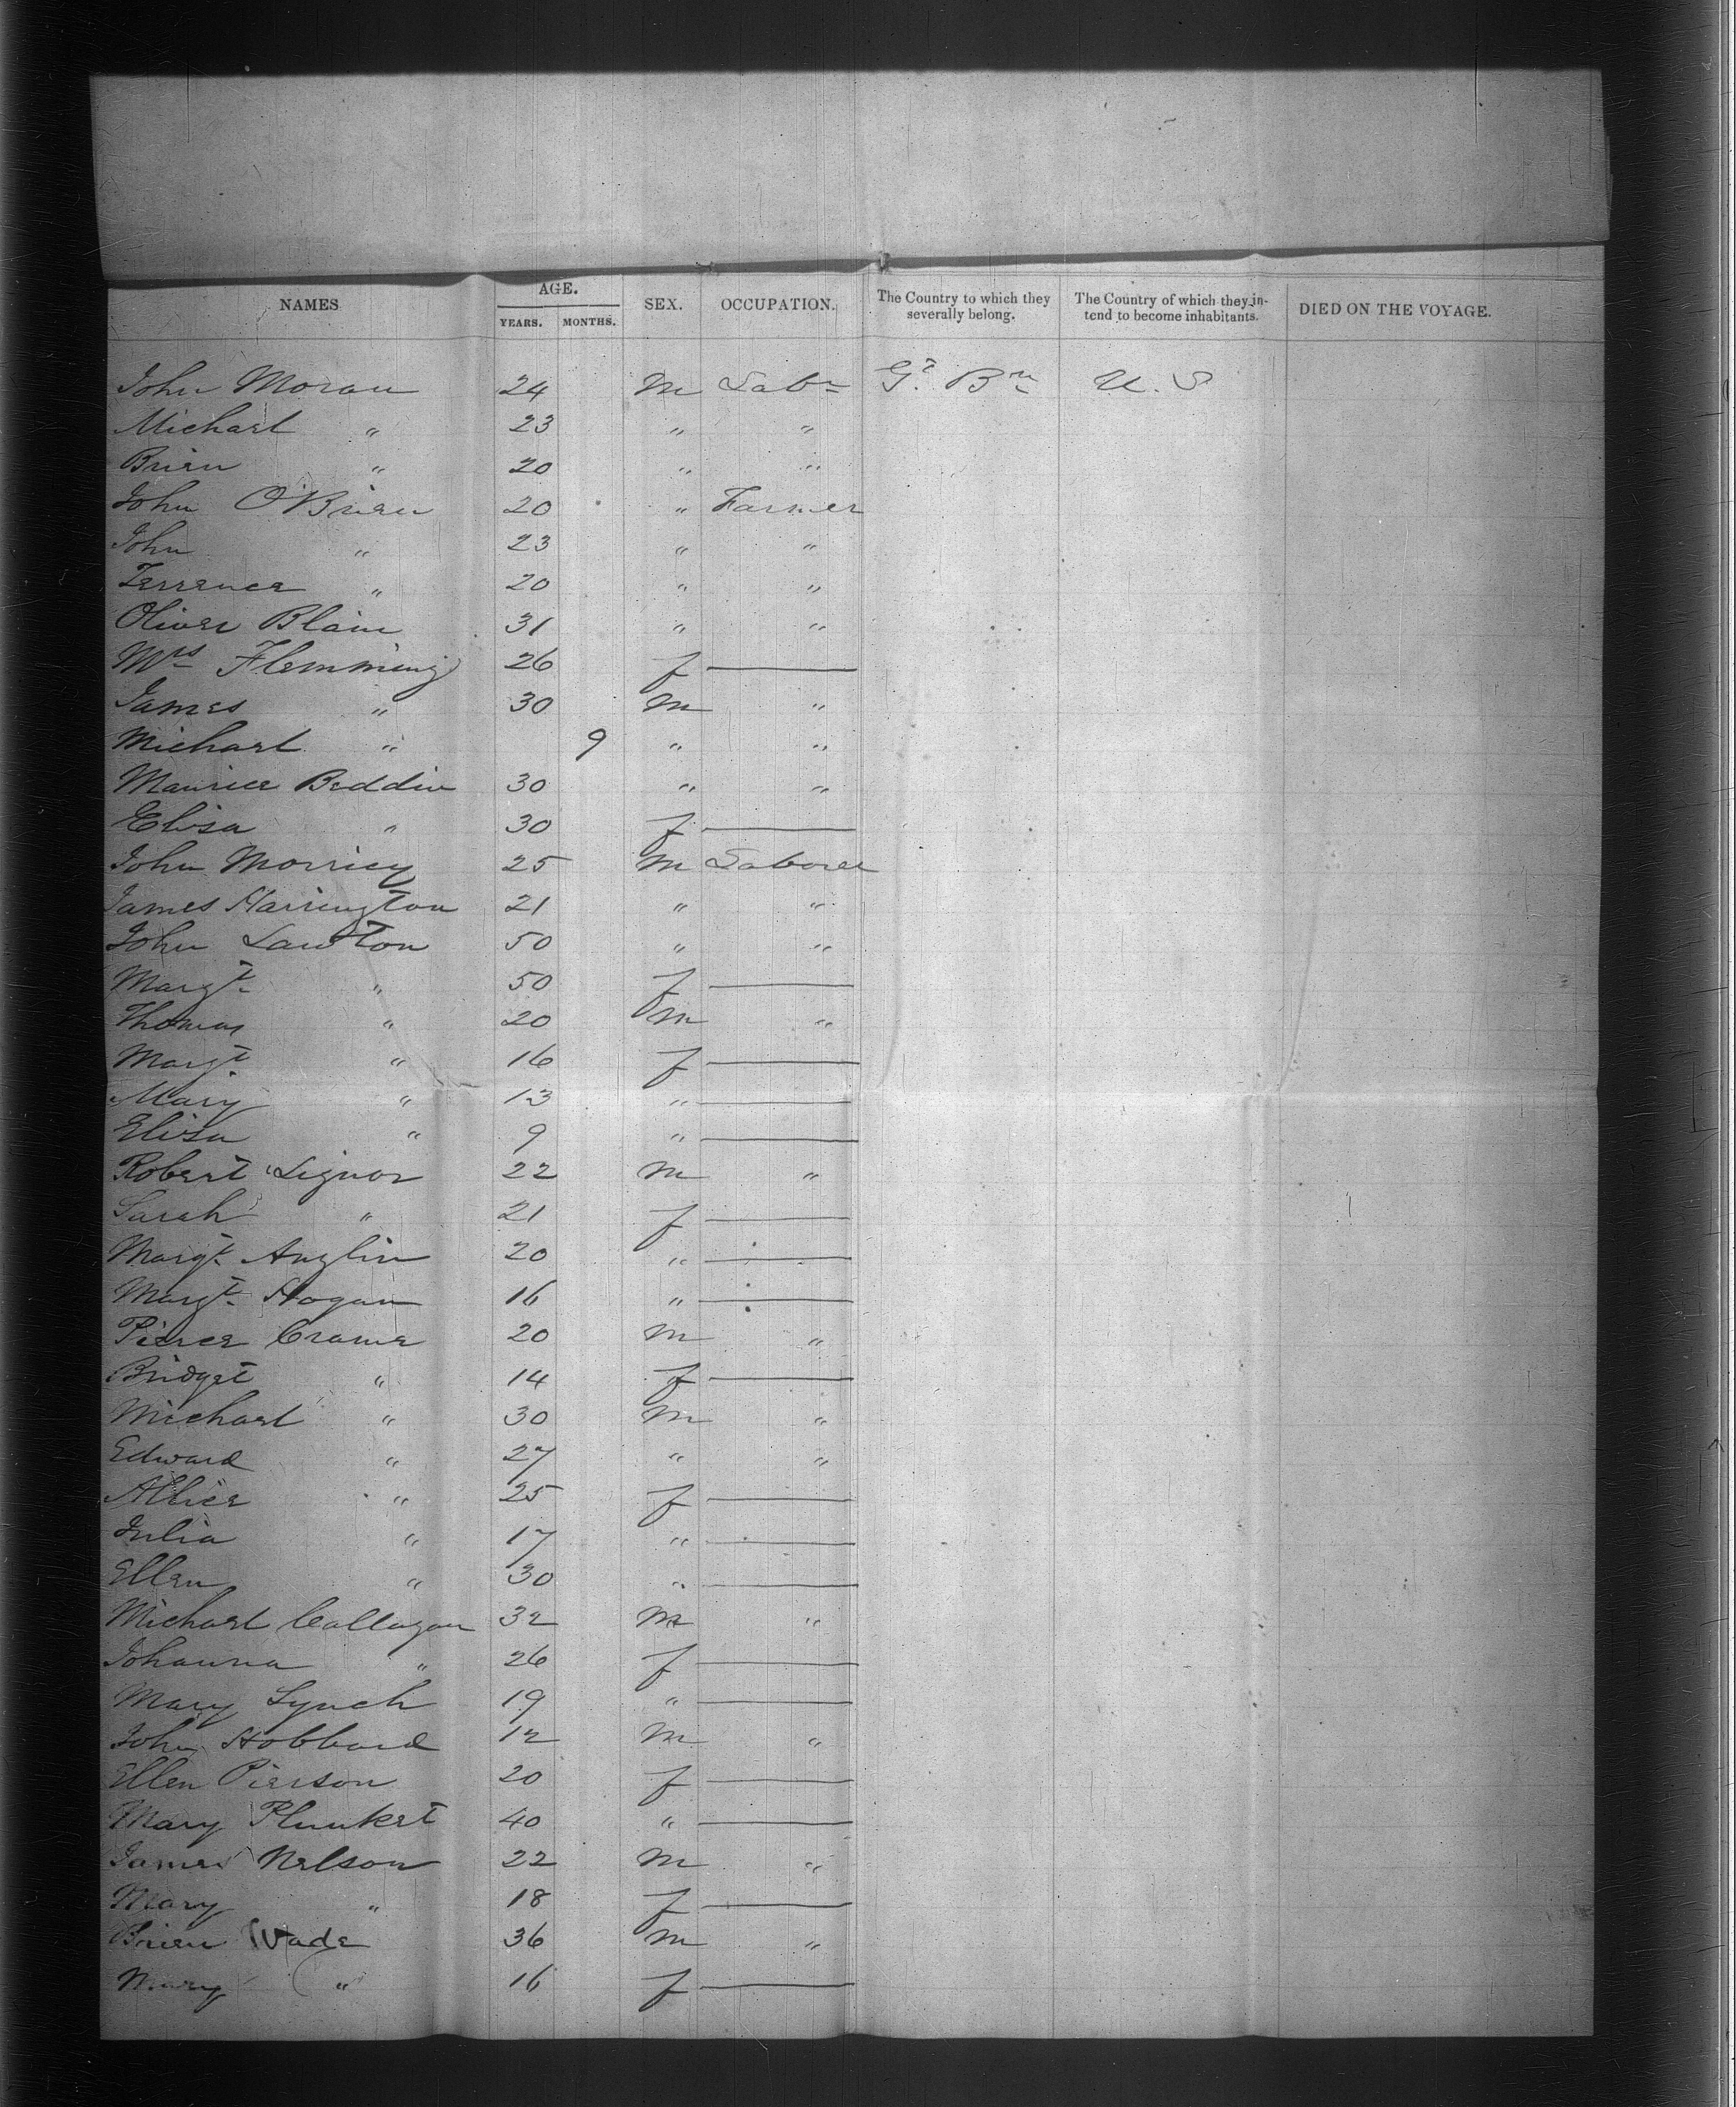 NAMES AGE. SEX. OCCUPATION. The Country to which they severally belong. The Country of which they in-tend to become inhabitants. DIED ON THE VOYAGE.
YEARS. MONTHS.
John Moran 24 m Labr Gt. Bn U. S
Michael " 23 " "
Brien " 20 " "
John O'Brien 20 " Farmer
John " 23 " "
Terrence " 20 " "
Oliver Blain 31 " "
Mrs Flemming 26 f —
James " 30 m "
Michael " 9 " "
Maurice Beddin 30 " "
Eliza " 30 f —
John Morricy 25 m Laborer
James Harrington 21 " "
John Lawton 50 " "
Margt. " 50 f —
Thomas " 20 m "
Margt " 16 f —
Mary " 13 " —
Eliza " 9 " —
Robert Lignor 22 m "
Sarah " 21 f —
Margt. Anglin 20 " —
Margt. Hogan 16 " —
Pierce Crame 20 m "
Bridget " 14 f —
Michael " 30 m "
Edward " 27 " "
Allice " 25 f —
Julia " 17 " —
Ellen " 30 " —
Michael Callagan 32 m "
Johanna " 26 f —
Mary Lynch 19 " —
John Hobbard 12 m "
Ellen Pierson 20 f —
Mary Plunket 40 " —
James Nelson 22 m "
Mary " 18 f —
Brien Wade 36 m "
Mary " 16 f —